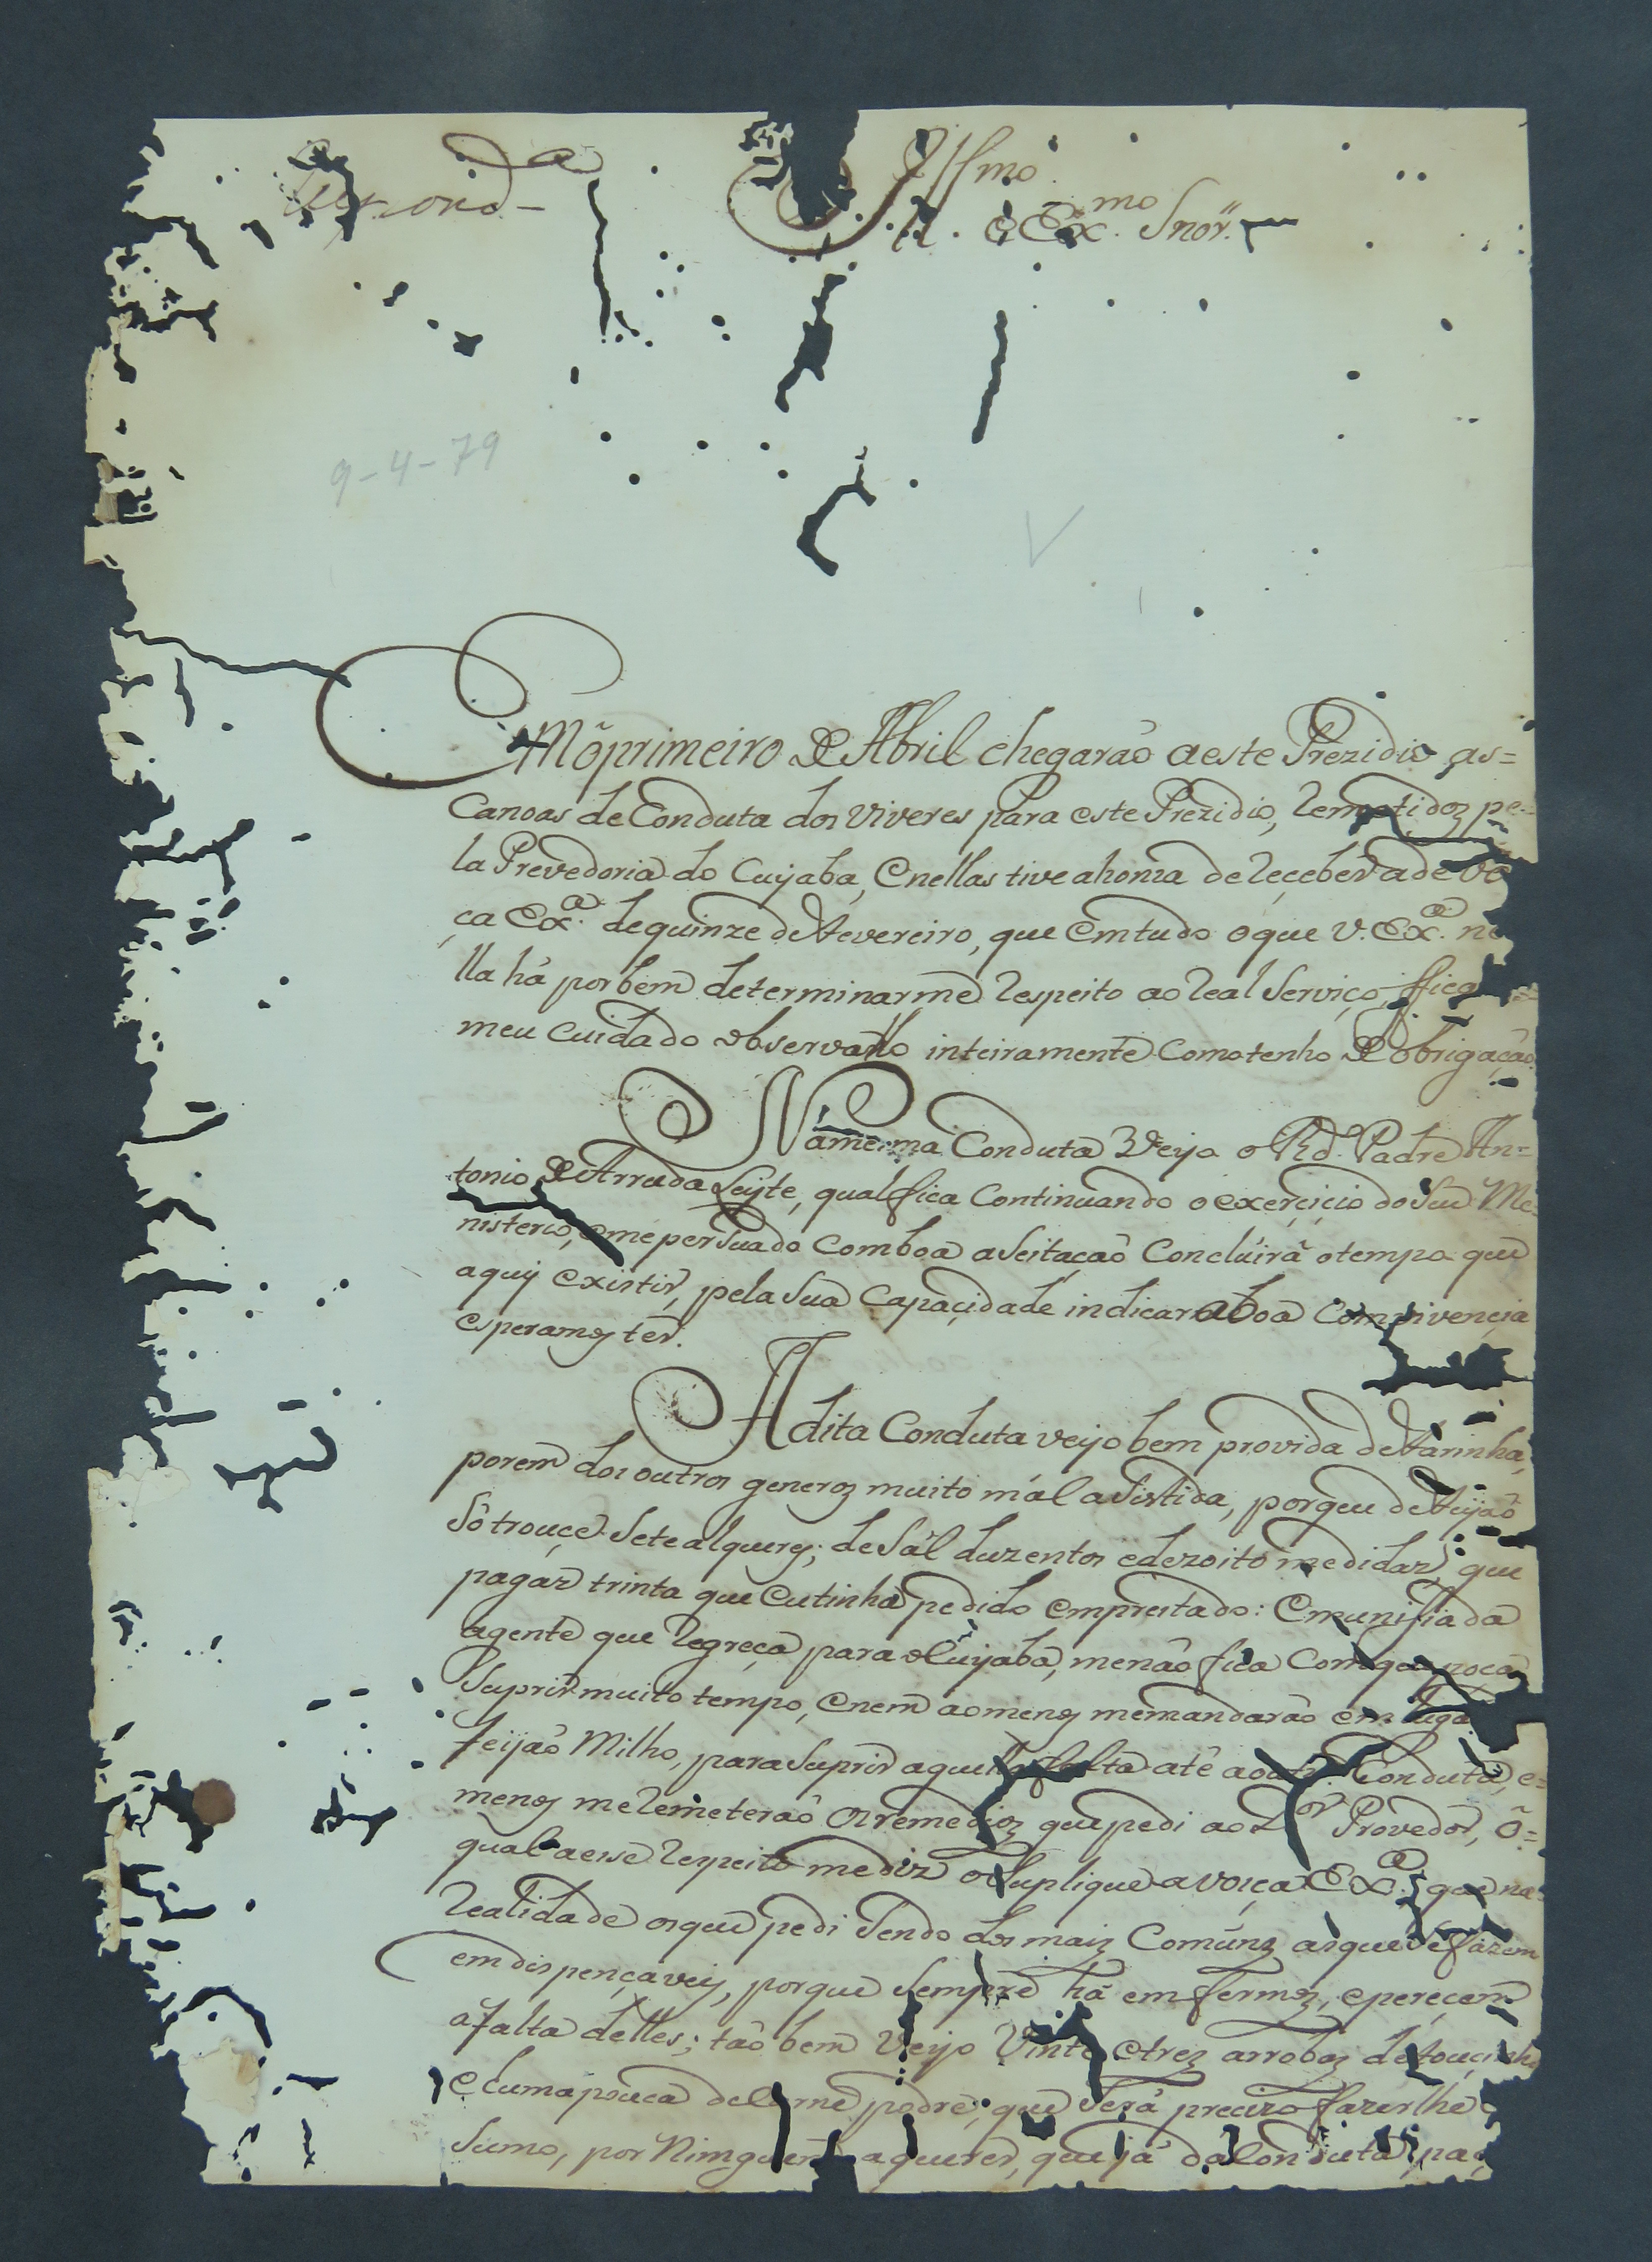 Respond.da
Illmo
e Exmo. Snor.
9-4-79
Em o primeiro de Abril chegaraõ a este Prezidio as=
Canoas de Conduta dos Viveres para este Prezidio, Remetidoz pe-
la Provedoria do Cuyaba, e nellas tive a honra de Receber a de vo
ça Exa. de quinze de Fevereiro, que em tudo o que V. Exa. ne
lla há por bem determinarme Respeito ao Real Serviço, fica
meu cuidado observallo inteiramente como tenho de obrigaçaõ
Na mesma Conduta Veyo o Rd. Padre An=
tonio de Arruda Leyte, qual fica Continuando o exerçiçio do Seu Me-
nisterio, e me persuado com boa aSeitaçaõ Concluirá o tempo que
aquy existir, pela Sua Capaçidade indicar a boa Comvivençia
esperamos ter.
A dita Conduta veyo bem provida de Farinha,
porem dos outros generoz muito mál aSistida, porque de Feijaõ
Só trouçe Sete alqueres; de Sál duzentos e dezoito medidaz, que
pagar trinta que eu tinha pedido emprestado: e muniSiada
agente que Regreça para o Cuyaba, me naõ fica Com que poça
Suprir muito tempo, e nem ao menos me mandaraõ em lugar
Feijaõ Milho, para Suprir aquella falta até a outr Conduta, e=
menos me Remeteraõ os remedioz que pedi ao or Provedor, õ=
qual a esse Respeito me diz o Suplique a voiça Exa. que na
Realidade os que pedi Sendo dos maiz Comúnz as que Se fazem
emdispençaveis, porque Sempre há emfermoz, e pereçem
a falta delles; taõ bem Veyo Vinte e trez arrobaz de touçinho
e huma pouca de Carne podre, que Será precizo fazerlhe
Sumo, por Nimguem a querer, que já da Conduta pa